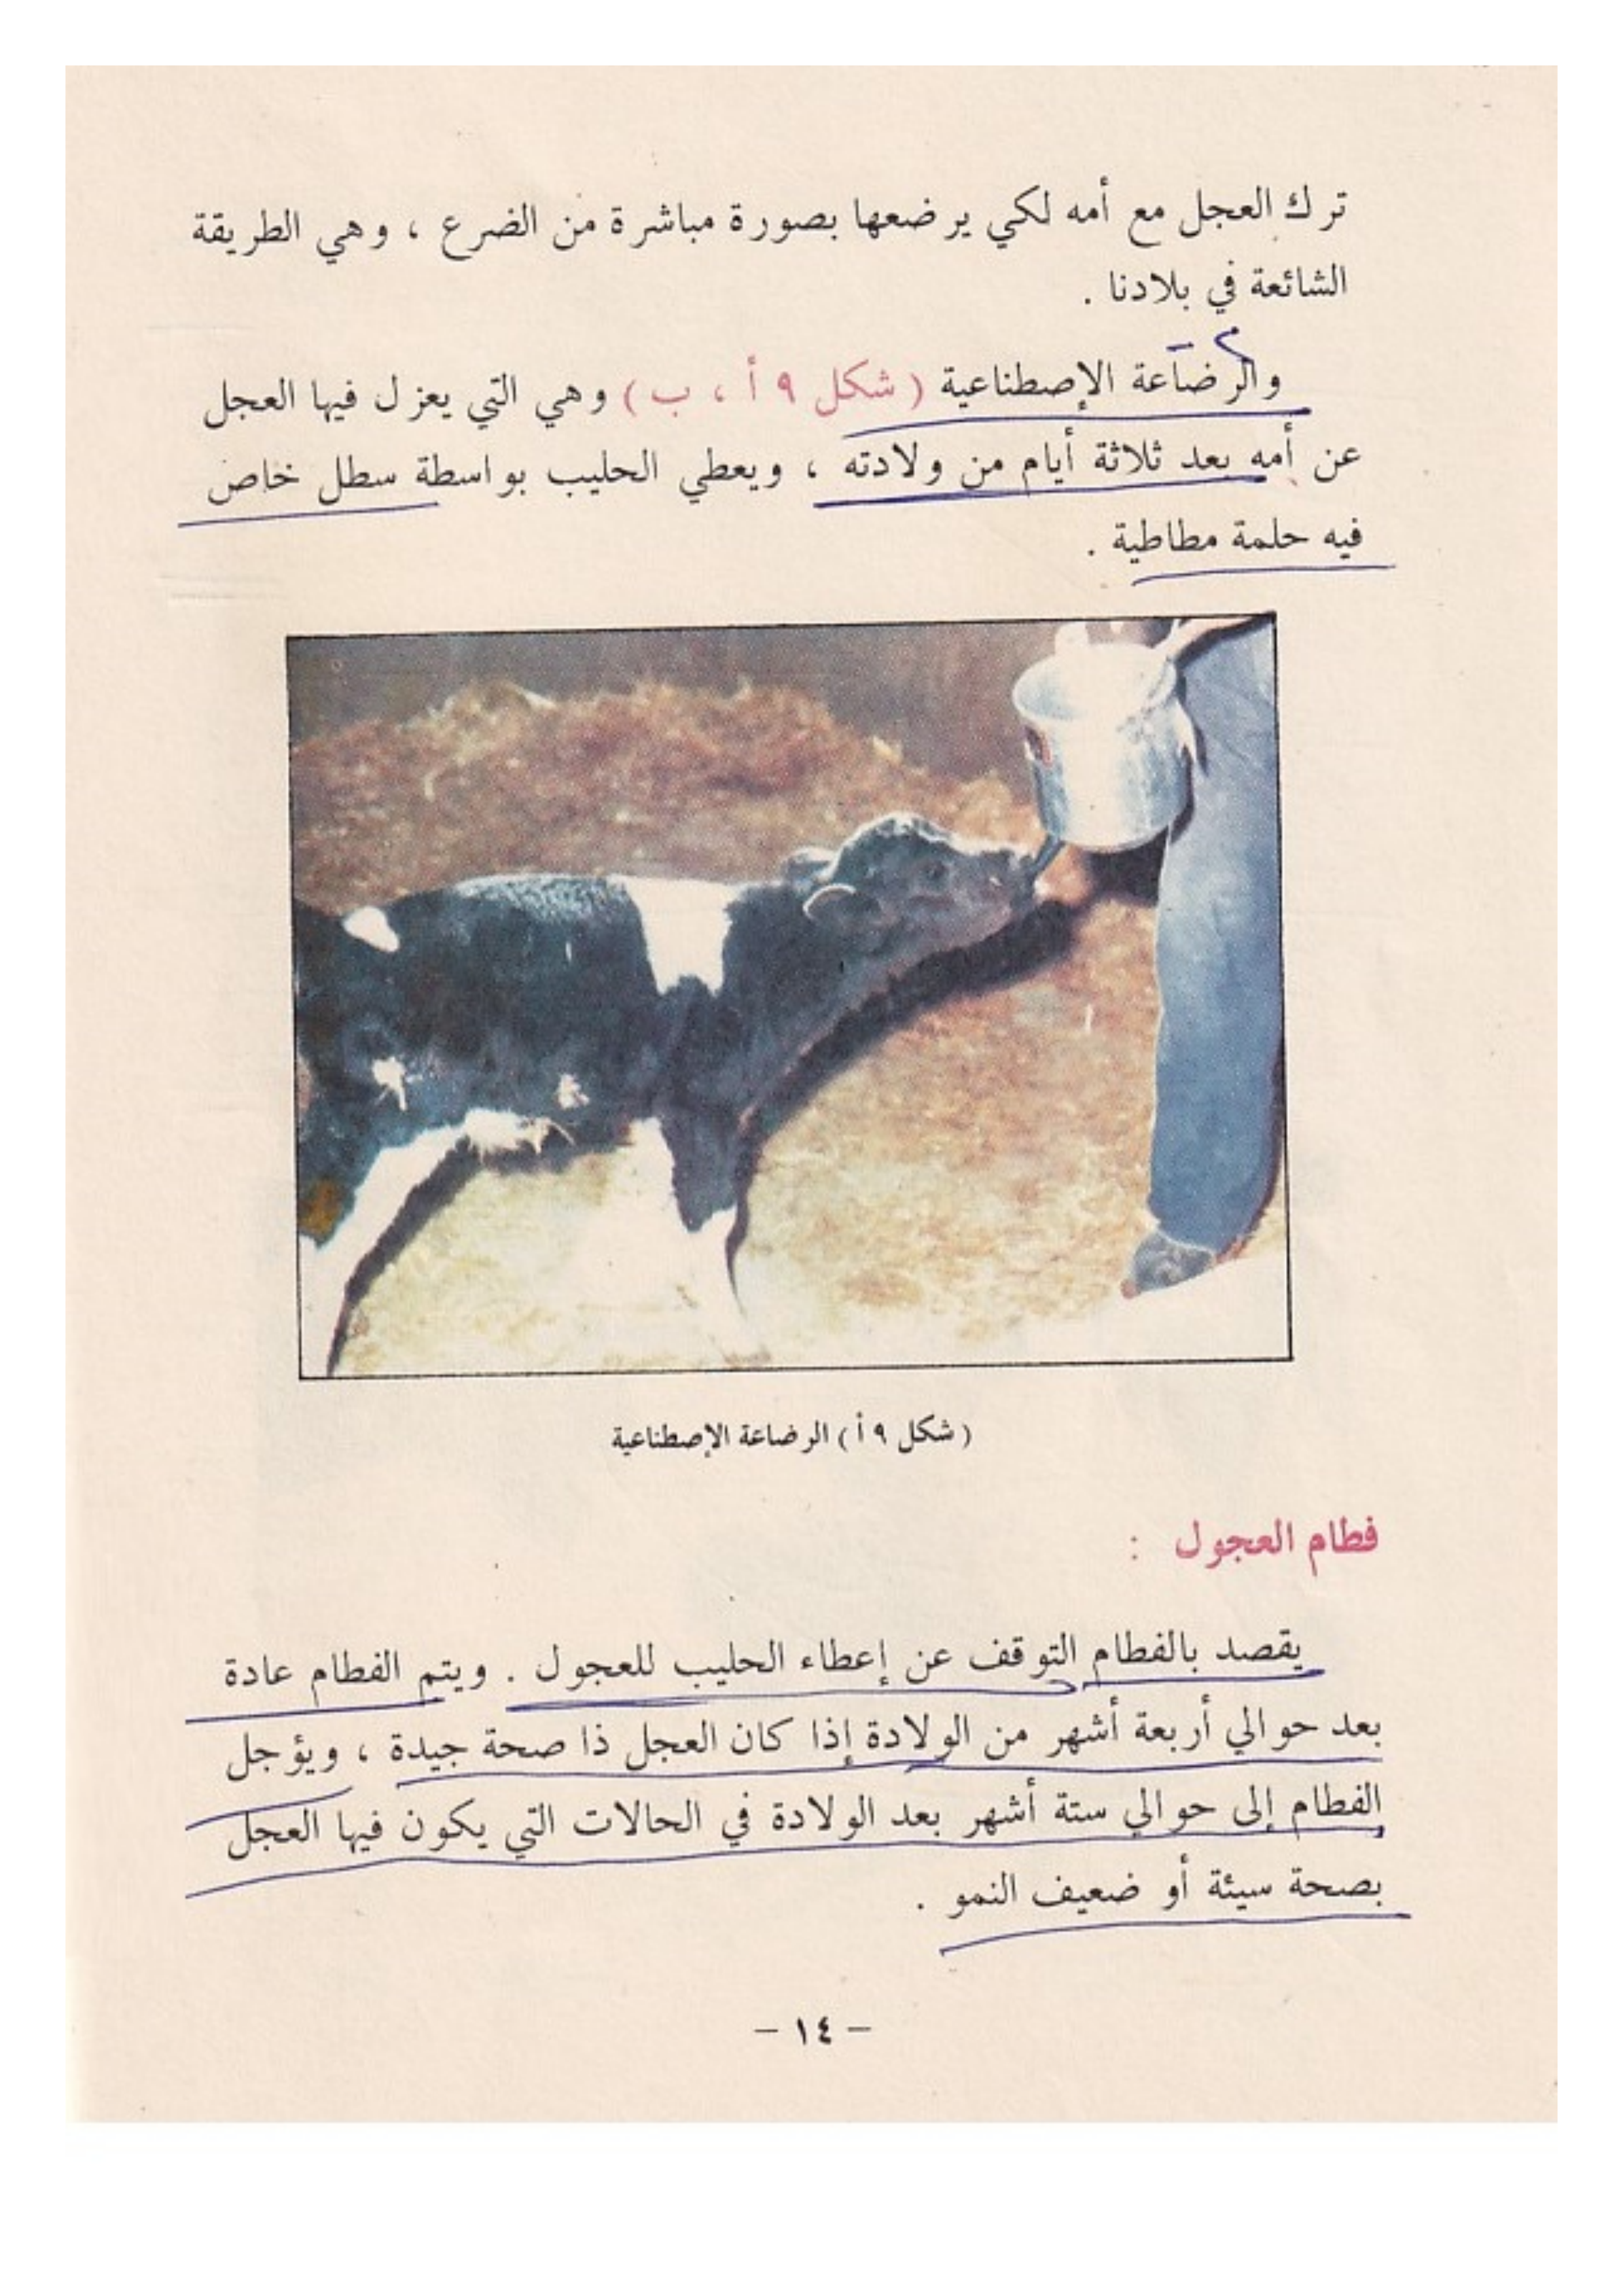 ترك العجل مع أمه لكي يرضعها بصورة مباشرة من الضرع ، وهي الطريقة
الشائعة في بلادنا .
والرضاعة الإصطناعية ( شكل ٩ أ ، ب ) وهي التي يعزل فيها العجل
عن أمه بعد ثلاثة أيام من ولادته ، ويعطي الحليب بواسطة سطل خاص
فيه حلمة مطاطية .
( شكل ٩ أ ) الرضاعة الإصطناعية
فطام العجول :
يقصد بالفطام التوقف عن إعطاء الحليب للعجول . ويتم الفطام عادة
بعد حوالي أربعة أشهر من الولادة إذا كان العجل ذا صحة جيدة ، ويؤجل
الفطام إلى حوالي ستة أشهر بعد الولادة في الحالات التي يكون فيها العجل
بصحة سيئة أو ضعيف النمو .
– ١٤ –